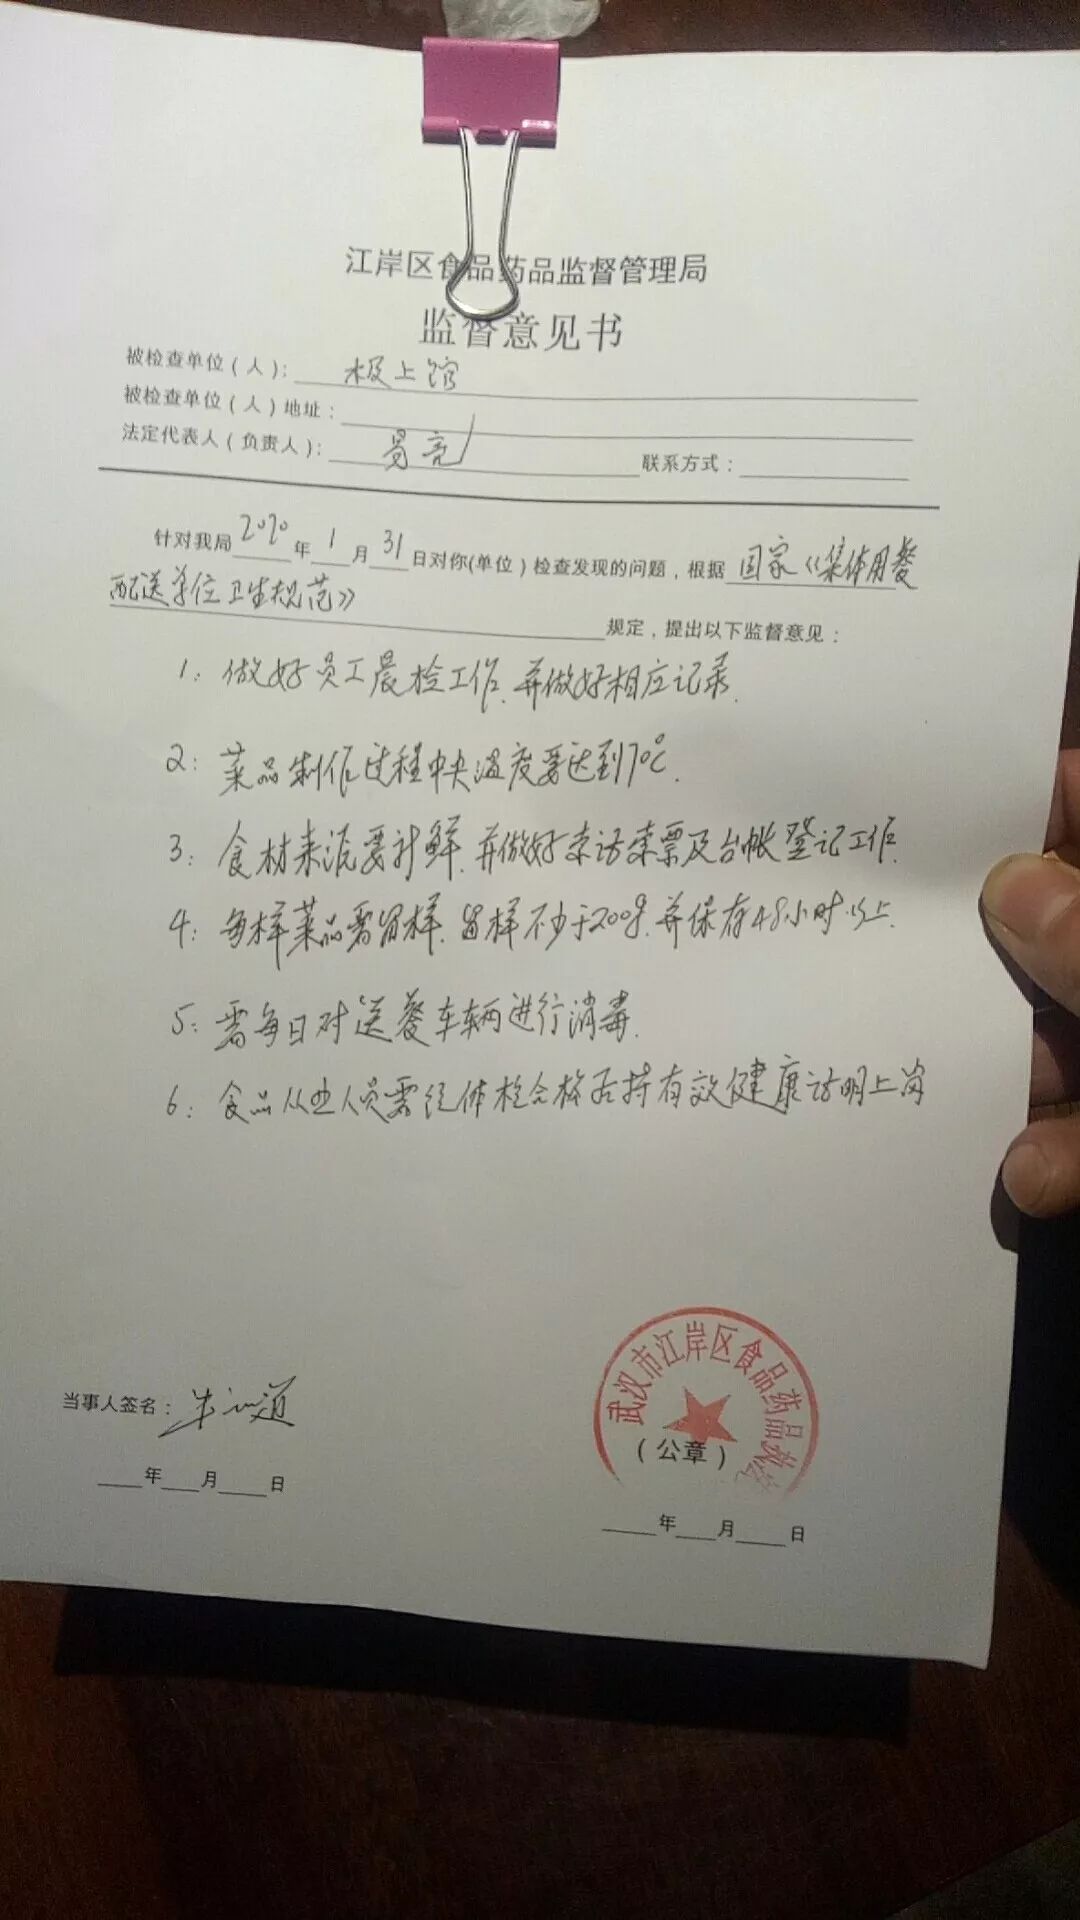 江岸区食品药品监督管理局
监督意见书
被检查单位(人): 极上馆
被检查单位(人)地址:
法定代表人(负责人): 亮 联系方式:
针对我局2020年1月31日对你(单位)检查发现的问题,根据 国家《集体用餐
配送单位卫生规范》 规定,提出以下监督意见:
1: 做好员工晨检工作.并做好相应记录.
2: 菜品制作过程中央温度要达到70℃.
3: 食材来源要新鲜.并做好索证索票及台帐登记工作.
4: 每样菜品需留样.留样不少于200g.并保存48小时以上.
5: 需每日对送餐车辆进行消毒.
6: 食品从业人员需经体检合格后持有效健康证明上岗
武汉市江岸区食品药品
当事人签名:
(公章)
年 月 日
年 月 日